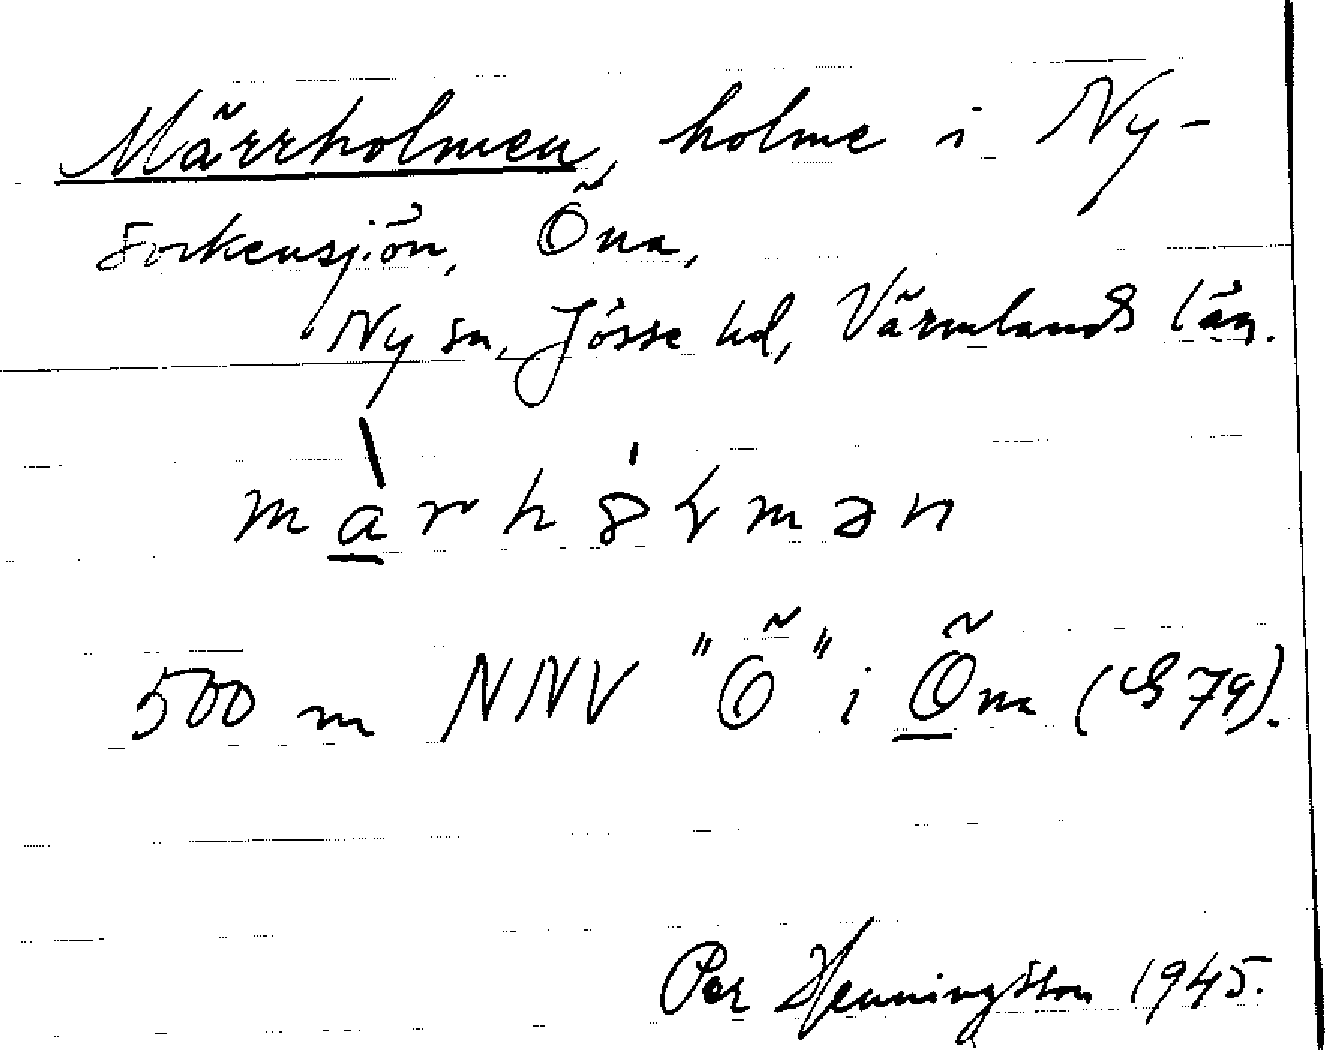 Märrholmen, holme i Ny-
sockensjön, Öna,
Ny sn, Jösse hd, Värmlands län.
m a r h m ə n
500 m NNV "Ö" i Öna (G 79).
Per Henningsson 1945.